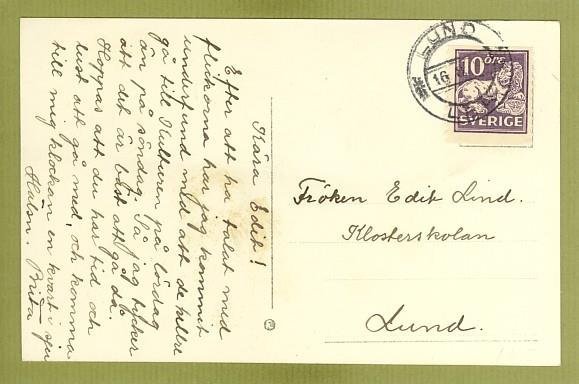 Kära Edit!
Efter att ha talat med
flickorna har jag kommit
underfund med att de hellre
gå till Kulturen på lördag
än på söndag. Så jag tycker
att det är bäst att gå då.
Hoppas att du har tid och
lust att gå med, och komma
till mig klockan en kvart i sju
Hälsn. Brita
LUND
16
LUND
10 ÖRE
SVERIGE
Fröken Edit Lind.
Klosterskolan
Lund.